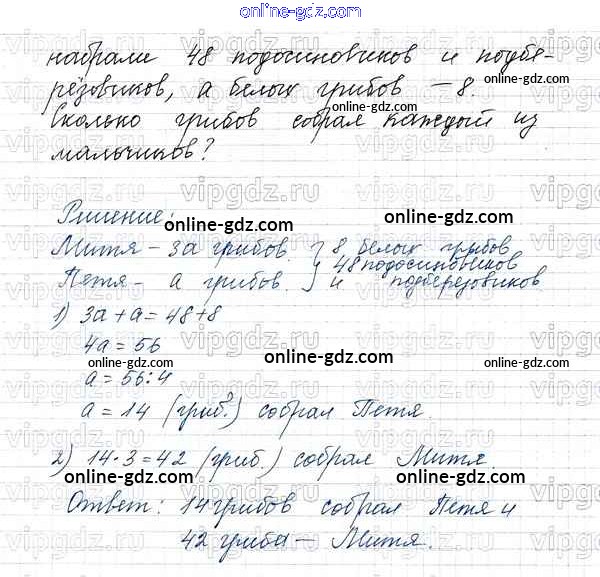 online-gdz.com
набрали 48 подосиновиков и подбе-
рёзовиков, а белых грибов – 8.
online-gdz.com
Сколько грибов собрал каждый из
мальчиков?
online-gdz.com
vipgdz.ru vipgdz.ru vipgdz.ru
Решение:
online-gdz.com
online-gdz.com
Митя – 3а грибов. } 8 белых грибов
48 подосиновиков
Петя – а грибов. и подберезовиков
1) 3а + а = 48 + 8
online-gdz.com
4а = 56
online-gdz.com
online-gdz.com
а = 56 : 4
а = 14 (гриб.) собрал Петя.
online-gdz.com
2) 14 · 3 = 42 (гриб.) собрал Митя.
online-gdz.com
Ответ: 14 грибов собрал Петя и
online-gdz.com
42 гриба – Митя.